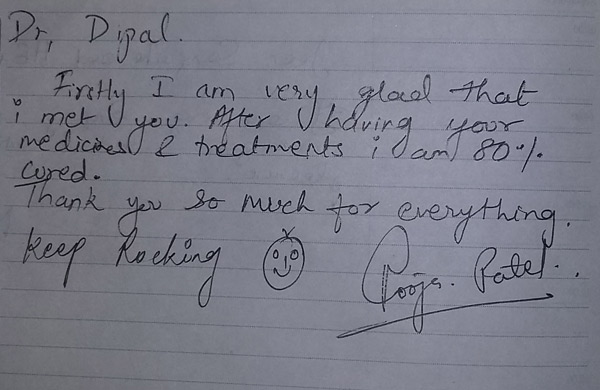 Dr, Dipal.
Firstly I am very glad that
i met you. After having your
medicines & treatments i am 80%
cured.
Thank you so much for everything.
keep Rocking
Pooja. Patel..